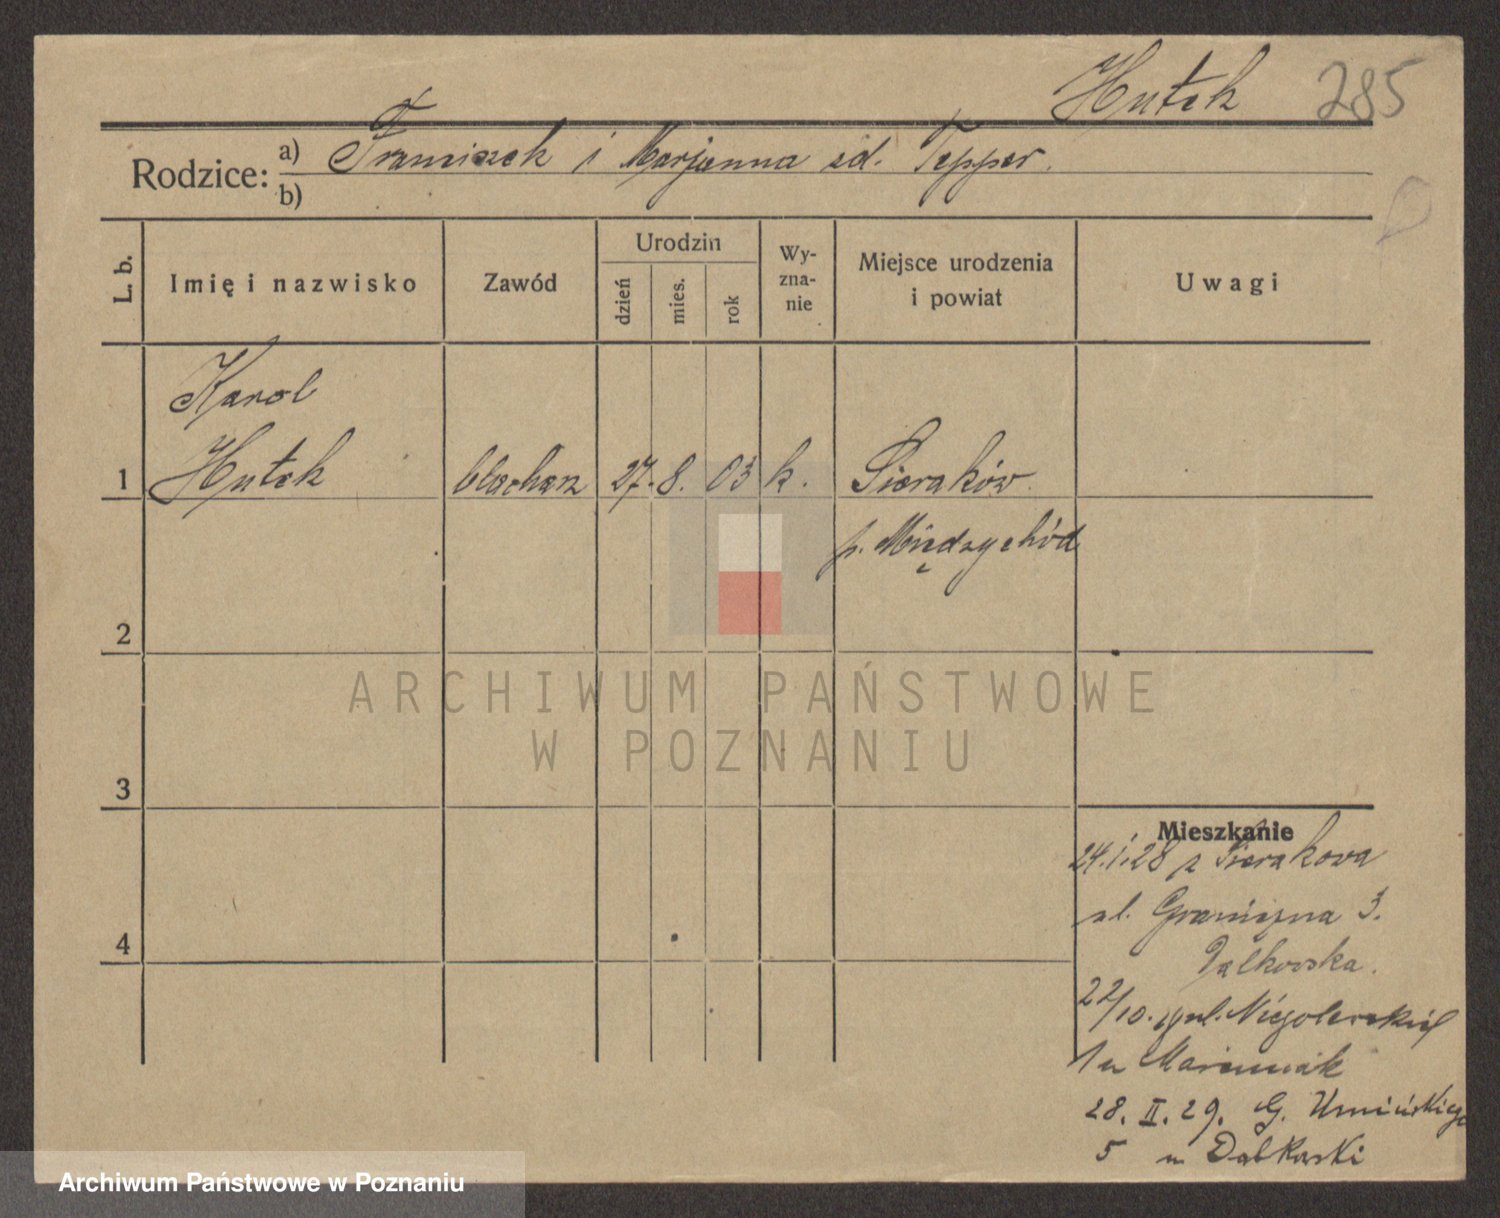 Hutek 285
Rodzice: a) Franciszek i Marjanna zd. Tepper.
b)
L. b.
Imię i nazwisko
Zawód
Urodzin
dzień
mies.
rok
Wy-
zna-
nie
Miejsce urodzenia
i powiat
Uwagi
Karol
1 Hutek blacharz 27. 8. 03 k. Sieraków
p. Międzychód
2
3
4
ARCHIWUM PAŃSTWOWE
W POZNANIU
Mieszkanie
24.1.28 z Sierakowa
ul. Graniczna 3.
22/10.
1 u Marciniak
28. II. 29. G. Umińskiego
5 u Dalkowski
Archiwum Państwowe w Poznaniu